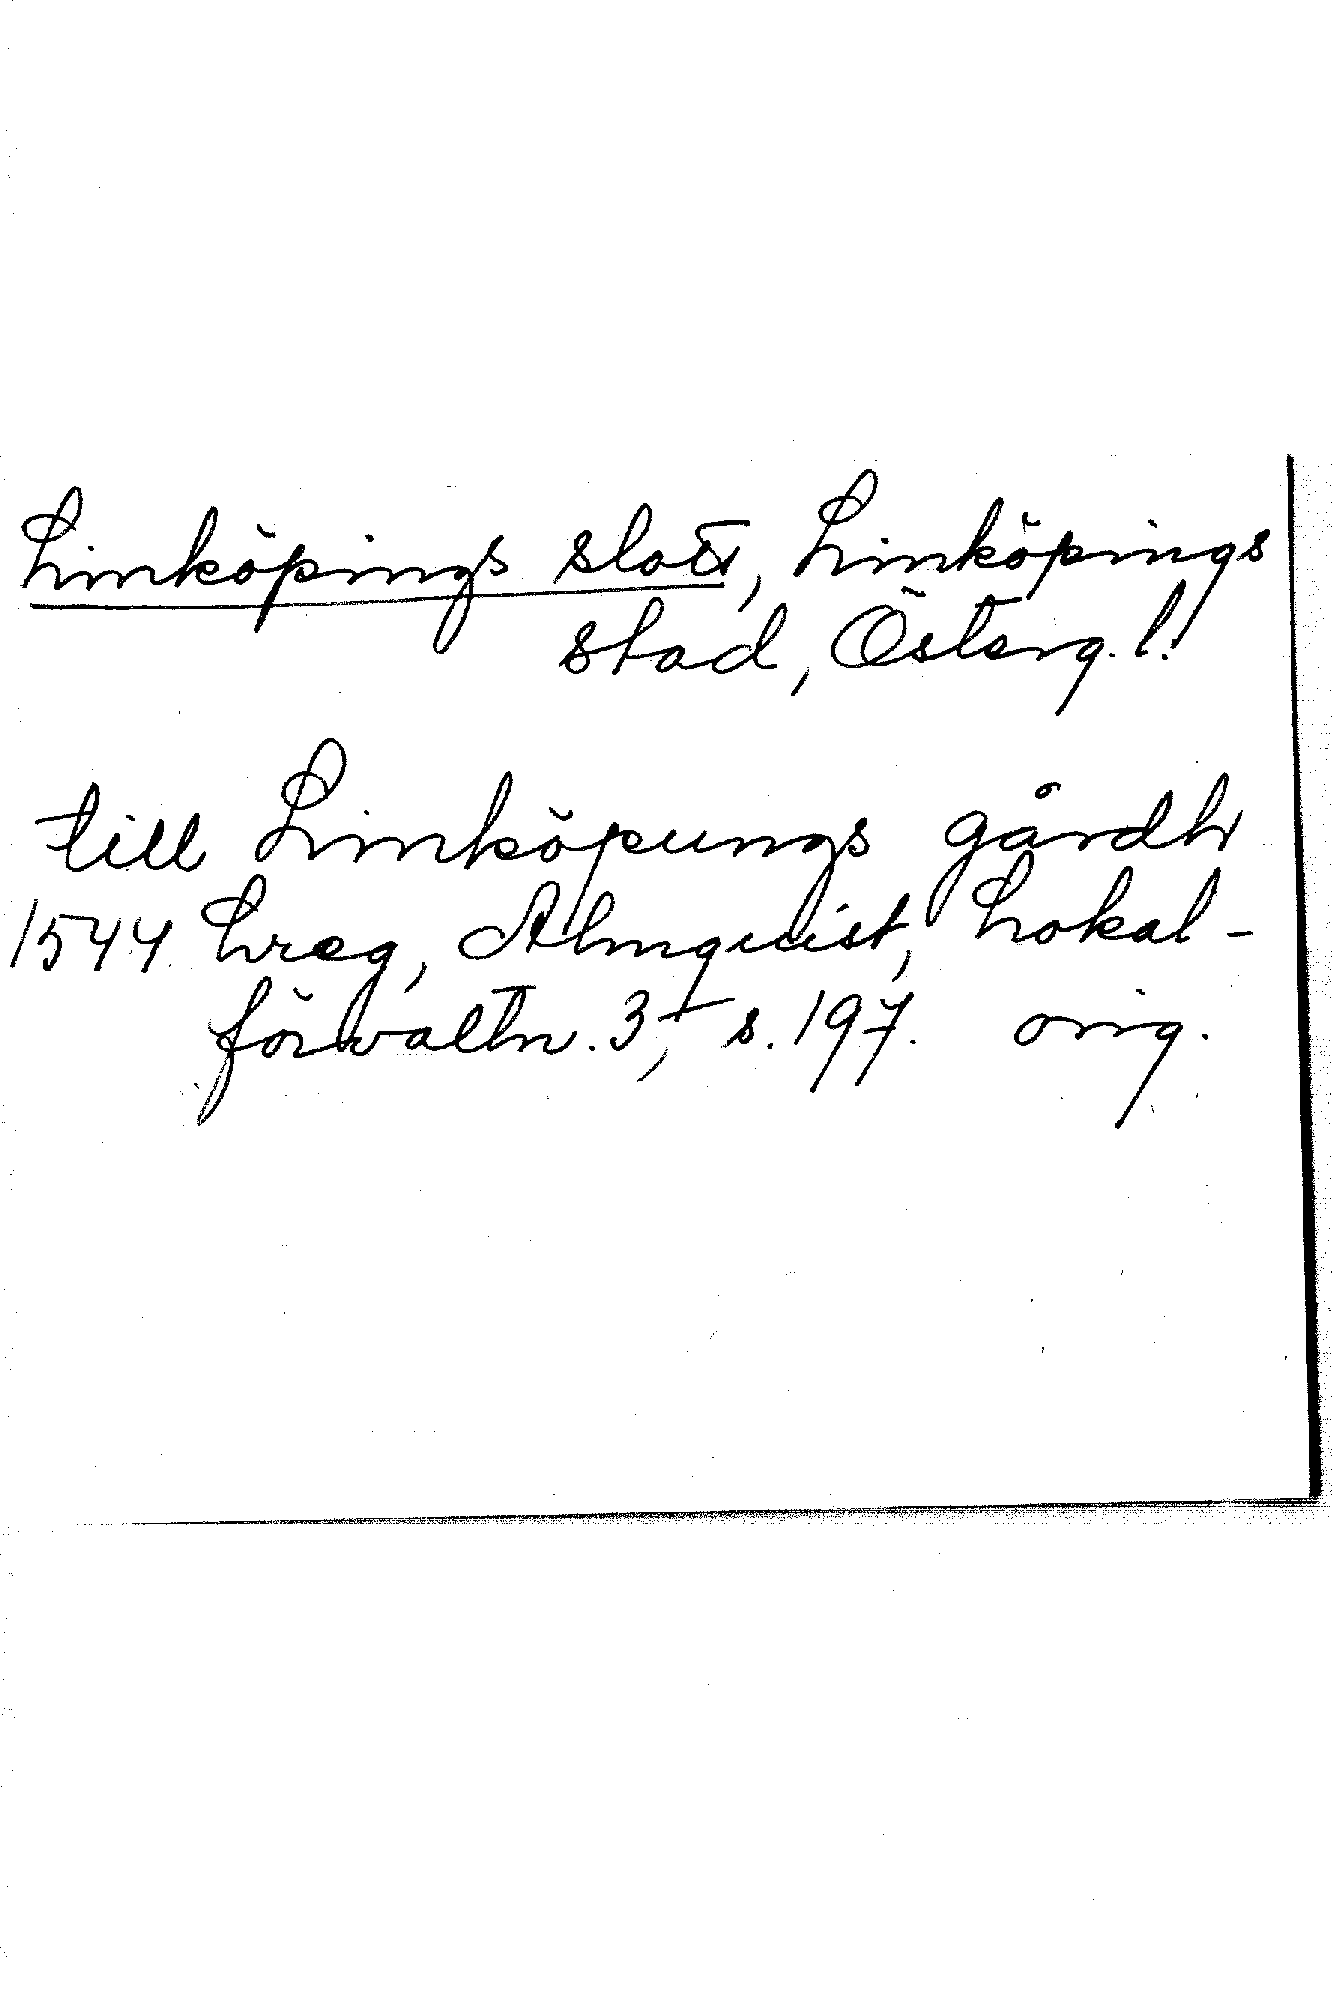 Linköpings slott, Linköpings
stad, Österg. l.
till Linköpungs gårdh
1544 Lreg, Almquist, Lokal-
förvaltn. 3, s. 197. orig.